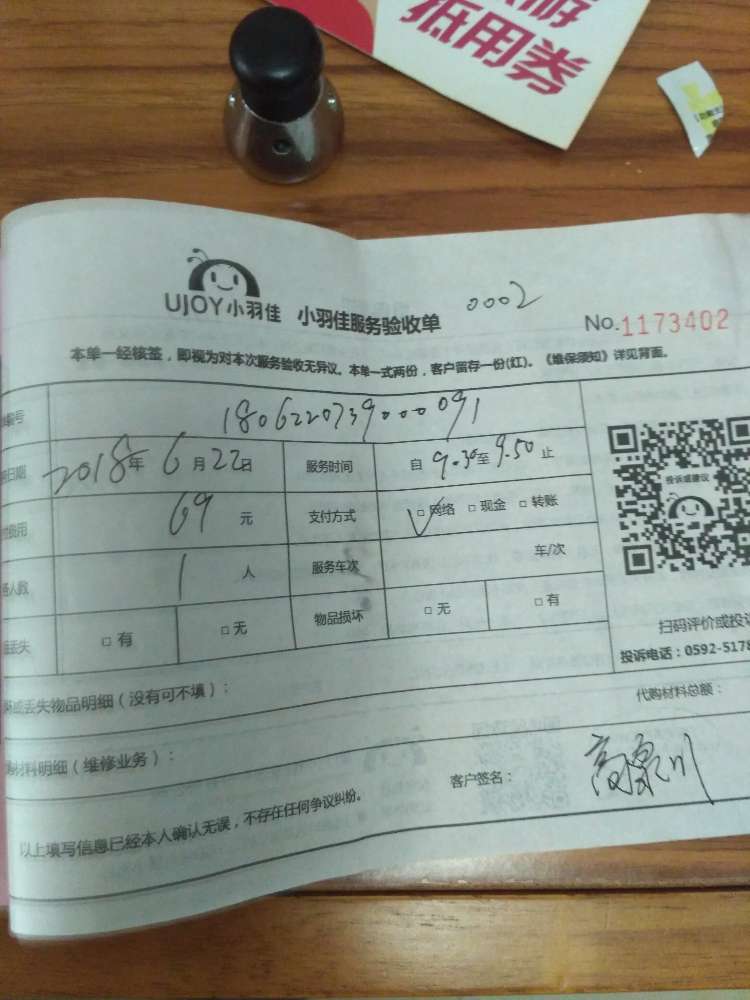 抵用券
UJOY小羽佳 小羽佳服务验收单 0002 No.1173402
本单一经核签，即视为对本次服务验收无异议。本单一式两份，客户留存一份(红)。《维保须知》详见背面。
号 1806220739000091
日期 2018年6月22日 服务时间 自9.30至9.50止
费用 69元 支付方式 □网络 □现金 □转账
人数 1人 服务车次 车/次
丢失 □有 □无 物品损坏 □无 □有
投诉或建议
扫码评价或投诉
投诉电话：0592-5178
或丢失物品明细（没有可不填）：
代购材料总额：
材料明细（维修业务）：
客户签名：
以上填写信息已经本人确认无误，不存在任何争议纠纷。